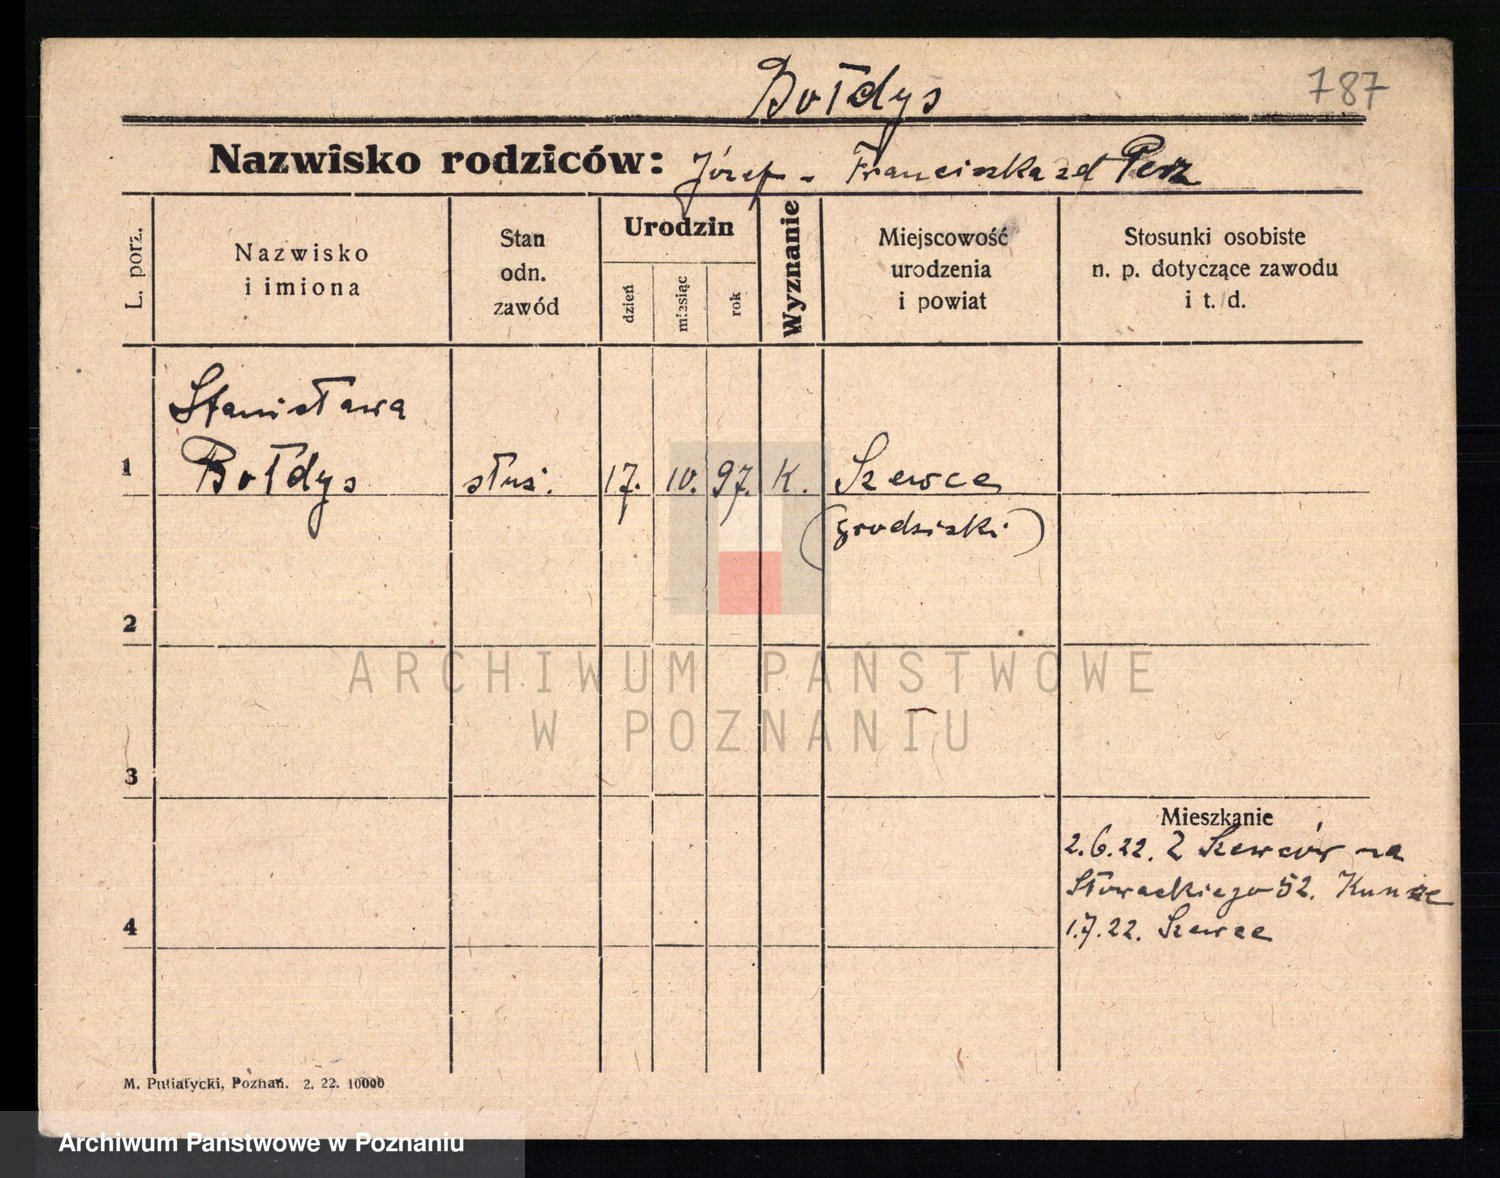 Bołdys
787
Nazwisko rodziców: Józef - Franciszka zd Perz
L. porz.
Nazwisko
i imiona
Stan
odn.
zawód
Urodzin
dzień
miesiąc
rok
Wyznanie
Miejscowość
urodzenia
i powiat
Stosunki osobiste
n. p. dotyczące zawodu
i t. d.
Stanisława
1 Bołdys służ. 17. 10. 97. K. Szewce
(grodziski)
2
ARCHIWUM PAŃSTWOWE
W POZNANIU
3
Mieszkanie
2.6.22. Z Szewców na
Słowackiego 52. Kunze
4
1.7.22. Szewce
M. Putiatycki, Poznań. 2. 22. 10000
Archiwum Państwowe w Poznaniu